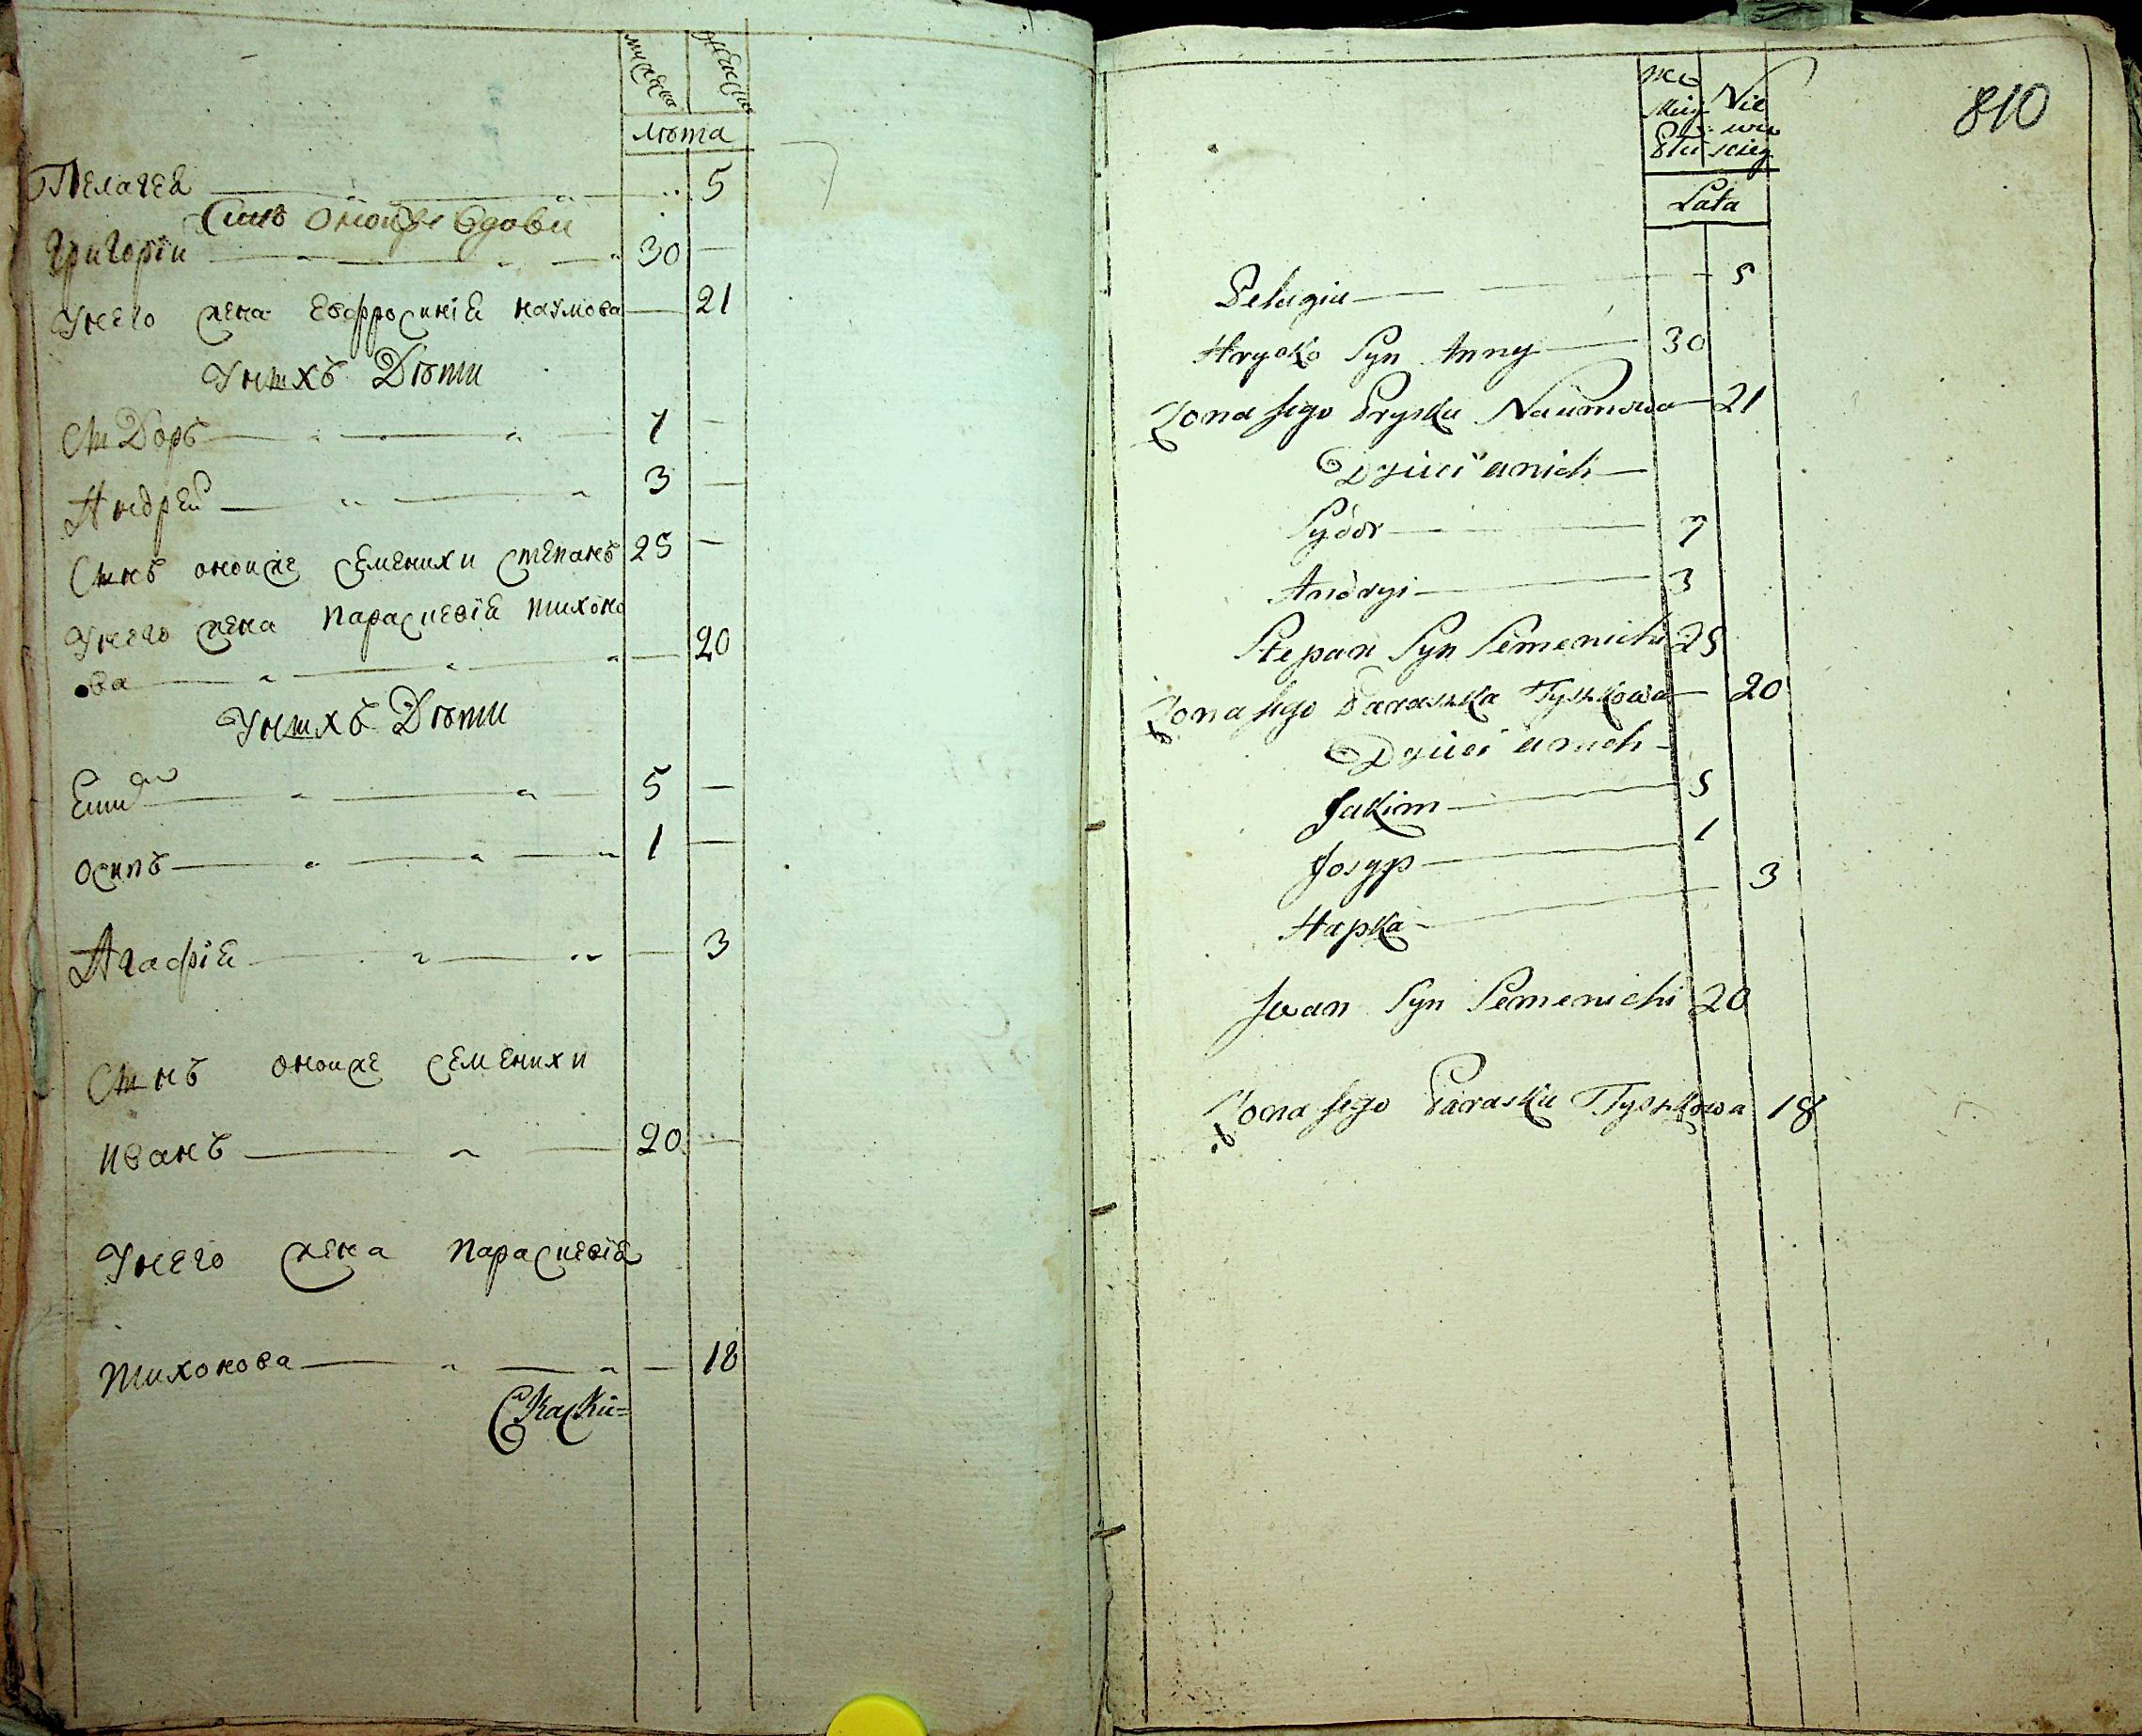 мужеска женска
лѣта
Пелагея 5
Синъ оной же вдови
Григорїи 30 —
У него жена Евфросинїя Наумова — 21
У нихъ Дѣти
Сидоръ 7 —
Андрей 3 —
Синъ оной же Семенихи Степанъ 25 —
У него жена Параскевїя Тихоно
ва — 20
У нихъ Дѣти
5 —
Осипъ 1 —
Агафїя — 3
Синъ оной же Семенихи
Иванъ 20 —
У него жена Параскевїя
Тихонова — 18
Скаски=
810
Lata
Pelagia 5
Hrycko Syn Anny 30
Zona jego Pryska Naumowa 21
Dzieci u nich
Sydor 7
Andryi 3
Stepan Syn Semenichi 25
Zona jego Paraska Tyszkowa 20
Dzieci u nich
Jakim 5
Josyp 1
Hapka 3
Iwan Syn Semenichi 20
Zona jego Paraska Tyszkowa 18